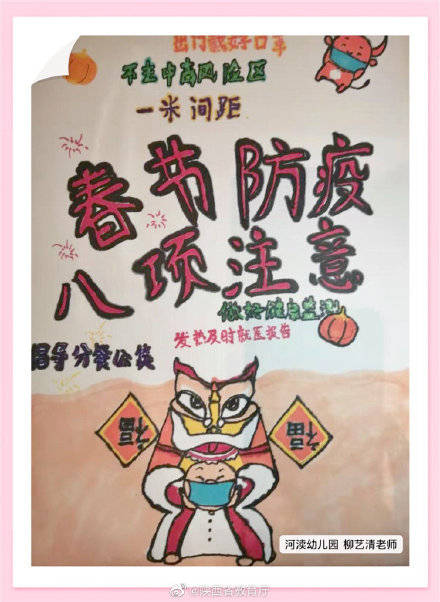 出门戴好口罩
不去中高风险区
一米间距
春节防疫
八项注意
做好健康监测
发热及时就医报告
倡导分餐公筷
福
福
河渎幼儿园 柳艺清老师
@陕西省教育厅